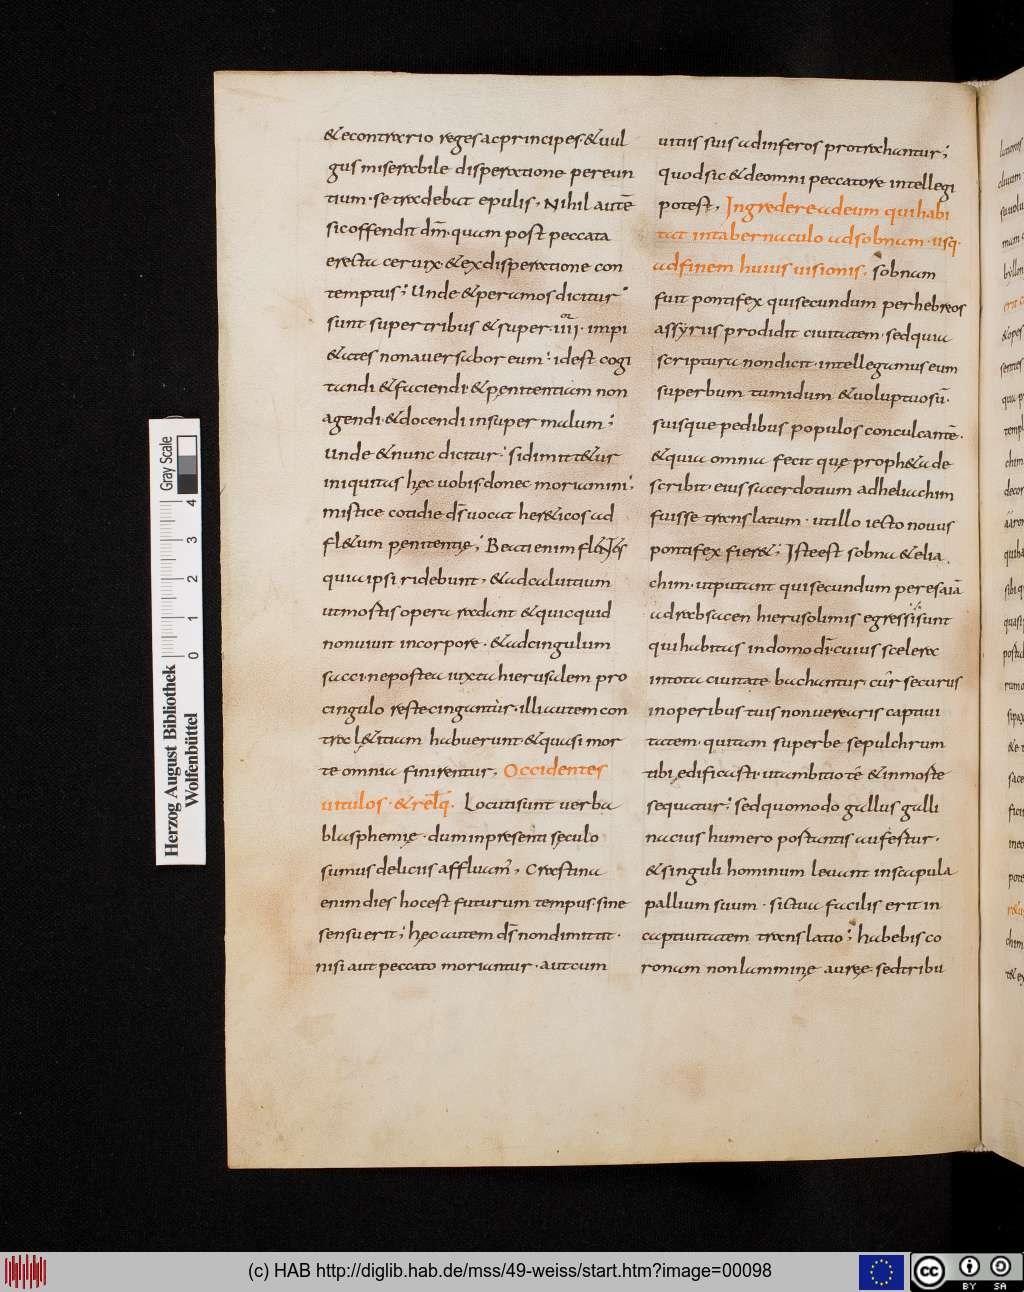 & econtrario reges ac principes. & uul
gus miserabile disperatione pereun
tium. se tradebat epulis, Nihil autē
sic offendit dm̄. quam post peccata
erecta ceruix. & ex disperatione con
temptus; Unde & per amos dicitur
sunt super tribus & super. iiij. impi
&ates non auersabor eum. id est cogi
tandi & faciendi & penitentiam non
agendi. & docendi insuper malum;
Unde & nunc dicitur. si dimitt&ur
iniquitas hęc uobis donec moriamini;
mistice cotidie ds̄ uocat her&icos ad
fl&um penitentię; Beati enim flentes
quia ipsi ridebunt, & ad caluitium
ut mortis opera radant & quicquid
non uiuit in corpore. & ad cingulum
sacci. ne postea iuxta hierusalem pro
cingulo reste cingantur. illi autem con
tra l&itiam habuerunt & quasi mor
te omnia finirentur. Occidentes
uitulos. & relq̄. Locuti sunt uerba
blasphemię. dum in presenti sęculo
sumus deliciis affluam', Crastina
enim dies hoc est futurum tempus. sine
sensu erit; hęc autem ds̄ non dimittit.
nisi aut peccato moriantur. aut cum
uitiis suis ad inferos protrahantur;
quod sic & de omni peccatore intellegi
potest, Ingredere ad eum qui habi
tat in tabernaculo ad sobnam. usq.
ad finem huius uisionis. sobnam
fuit pontifex qui secundum per hebreos
assyriis prodidit ciuitatem. sed quia
scriptura non dicit. intellegamus eum
superbum tumidum & uoluptuosū.
suisque pedibus populos conculcantē.
& quia omnia fecit quę proph&a de
scribit. eius sacerdotium ad heliachim
fuisse translatum. ut illo iecto nouus
pontifex fier&; Iste est sobna & elia
chim. ut putant qui secundum per esaiā
ad rabsacen hierusolimis egressi sunt
qui habitas in domo dī. cuius scelera
in tota ciuitate bachantur. cur securus
in operibus tuis non uerearis captiui
tatem. qui tam superbe sepulchrum
tibi ędificasti. ut ambitio te & in morte
sequatur; sed quomodo gallus galli
nacius humero portantis aufertur.
& singuli hominum leuant in scapula
pallium suum. si tua facilis erit in
captiuitatem translatio; habebis co
ronam non lamminę aureę. sed tribu
Herzog August Bibliothek
Wolfenbüttel
0 1 2 3 4
Gray Scale
(c) HAB http://diglib.hab.de/mss/49-weiss/start.htm?image=00098
cc BY SA